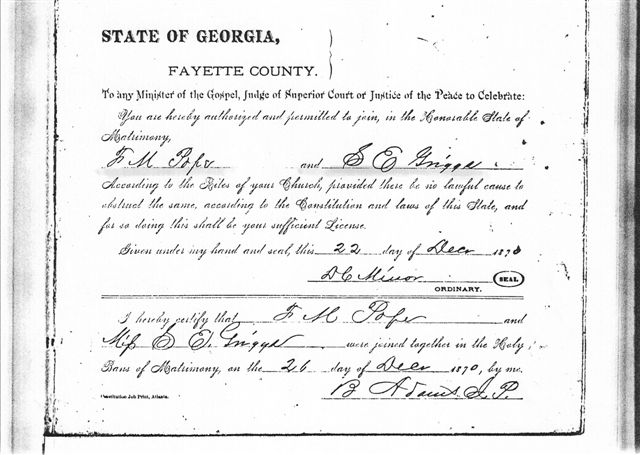 STATE OF GEORGIA,
FAYETTE COUNTY.
To any Minister of the Gospel, Judge of Superior Court or Justice of the Peace to Celebrate:
You are hereby authorized and permitted to join, in the Honorable State of
Matrimony,
F M Pope and S E Griggs
According to the Rites of your Church, provided there be no lawful cause to
obstruct the same, according to the Constitution and laws of this State, and
for so doing this shall be your sufficient License.
Given under my hand and seal, this 22 day of Decr 1870
D C Minor SEAL
ORDINARY.
I hereby certify that F M Pope and
Miss S E Griggs were joined together in the Holy
Bans of Matrimony, on the 26 day of Decr 1870, by me.
Constitution Job Print, Atlanta. B Adams J. P.